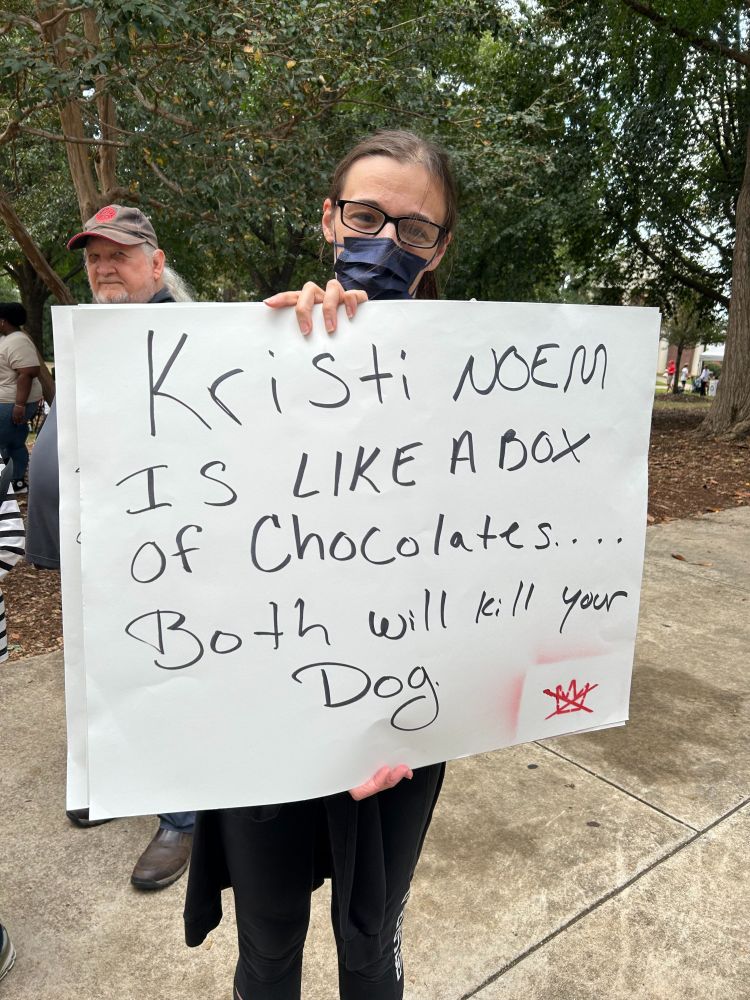 Kristi NOEM
IS LIKE A BOX
of Chocolates....
Both will kill your
Dog.